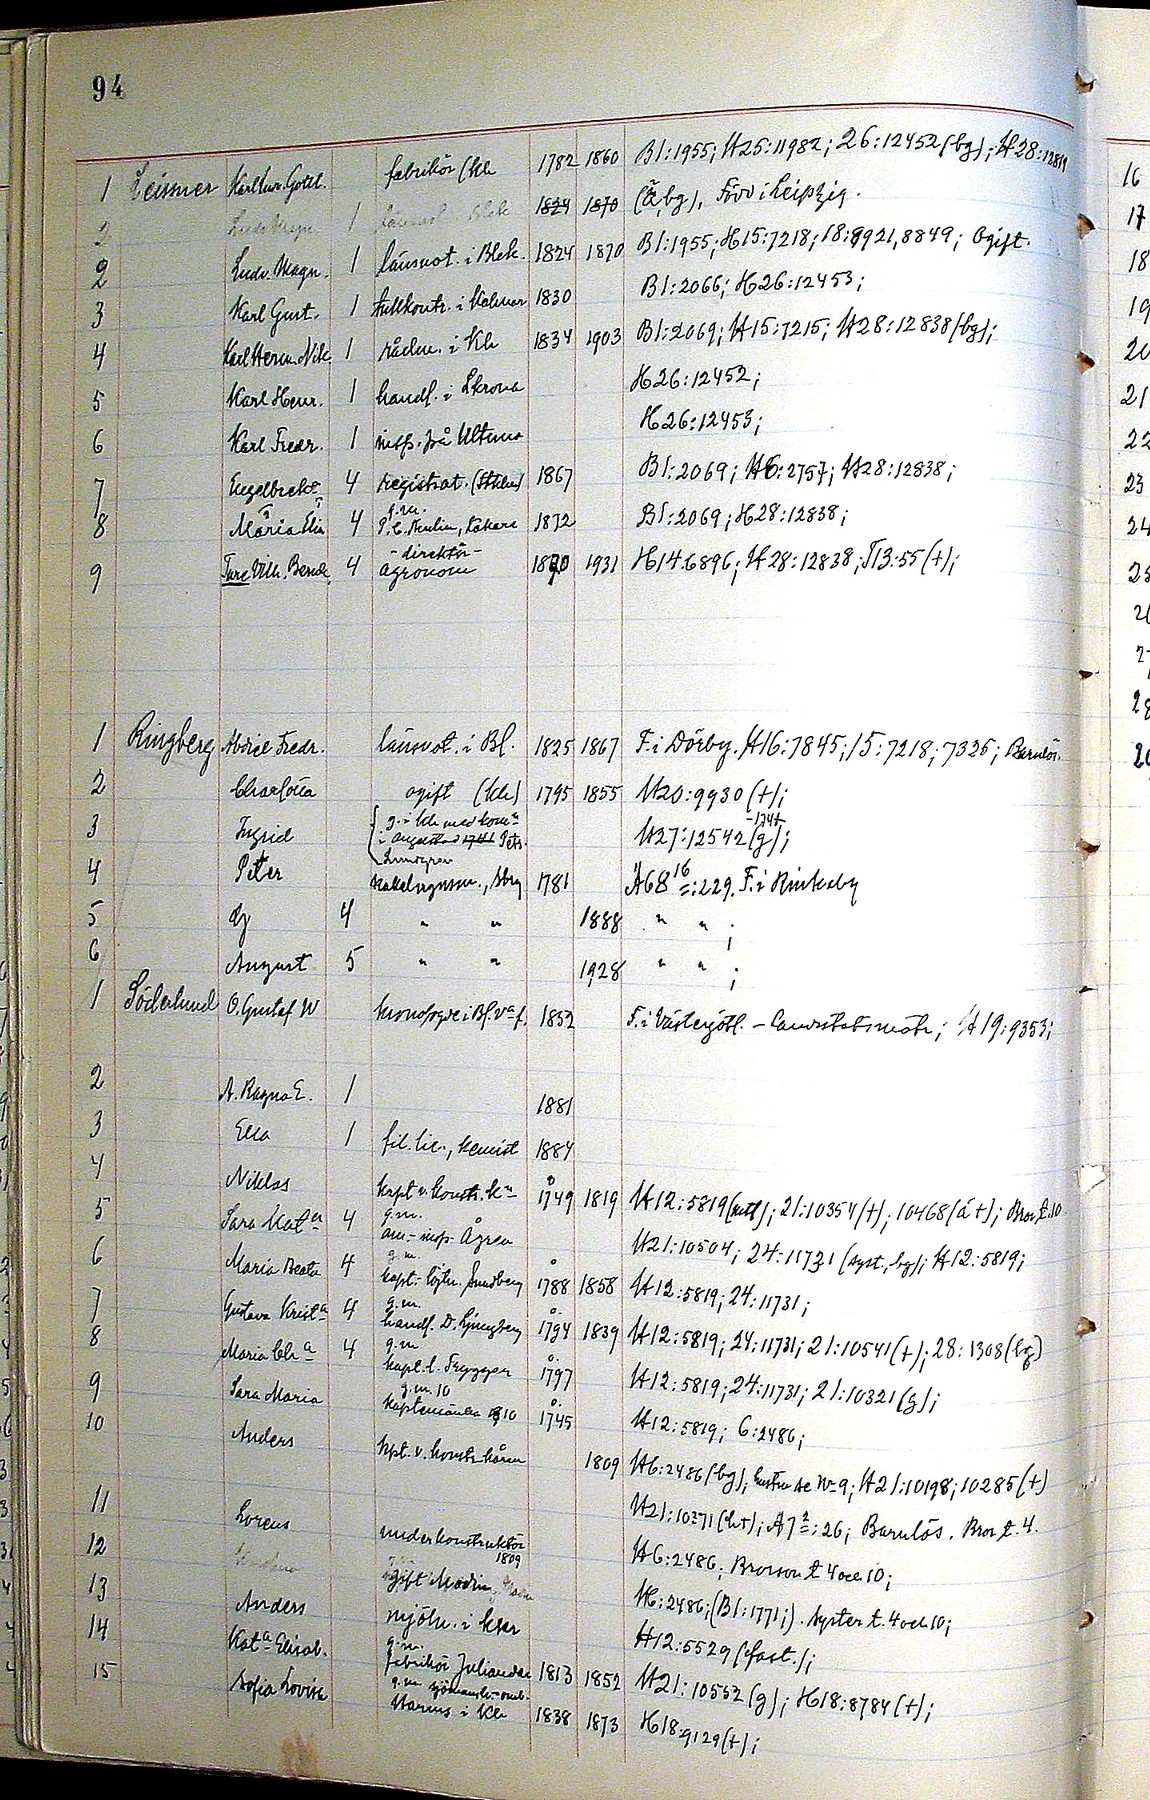 94
1 Leissner Karl Gottl. fabrikör (Kk 1782 1860 B1:1955; H25:11982; 26:12452(bg); H28:12819
2 1 Blek 1824 1870 (Ä,bg), Född i Leipzig.
2 Ludv. Magn. 1 länsnot. i Blek. 1824 1870 B1:1955; H15:7218; 18:8921,8849; Ogift.
3 Karl Gust. 1 tullkontr. i Kalmar 1830 B1:2066; H26:12453;
4 Karl Herm. Nik. 1 rådm. i Kk 1834 1903 B1:2069; H15:7215; H28:12838(bg);
5 Karl Henr. 1 handl. i Lkrona H26:12452;
6 Karl Fredr. 1 insp. på Ultuna H26:12453;
7 Engelbrekt 4 registrat. (Sthlm) 1867 B1:2069; H6:2757; H28:12838;
g.m.
8 Maria Elis 4 läkare 1872 B1:2069; H28:12838;
- direktör -
9 Ture Vilh. 4 agronom 1870 1931 H14:6896; H28:12838; T13:55(+);
1 Ringberg Abdiel Fredr. länsnot. i Bl. 1825 1867 F. i Dörby. H16:7845; 15:7218; 7325; Barnlös.
2 Charlotta ogift (Kk) 1795 1855 H20:9930 (+);
3 Ingrid g. i Kk med H27:12542(g);
Lundgren
4 Peter 1781 A68 16:229. F. i Rinkaby
5 4 " " 1888 " " ;
6 August 5 " " 1928 " " ;
1 Söderlund O. Gustaf W kronofogde i Bl. 1852 F. i Västergötl. - Landstatsmatr.; H19:9353;
2 A. Ragna E. 1 1881
3 Elsa 1 fil. lic., kemist 1884
4 Niklas kapt. v. konstr. 1749 1819 H12:5819; 21:10354(+); 10468(å+); Bror t. 10
g.m.
5 Sara Kat:a 4 insp. Ågren H21:10504; 24:11731 (syst., bg); H12:5819;
g.m.
6 Maria Beata 4 kapt.-löjtn. Sundberg 1788 1858 H12:5819; 24:11731;
g.m.
7 Gustava Krist:a 4 handl. D. Ljungberg 1794 1839 H12:5819; 24:11731; 21:10541(+); 28:1308(bg)
g.m
8 Maria Chr:a 4 kapt. l. Trygger 1797 H12:5819; 24:11731; 21:10321(g);
g.m. 10
9 Sara Maria kaptensänka 1810 1745 H12:5819; 6:2486;
10 Anders kpt. v. konstr. kåren 1809 H6:2486(bg); Hustru se N:o 9; H21:10198; 10285(+)
H21:10271; A7 2:26; Barnlös. Bror t. 4.
11 Lorens underkonstruktör
1809 H6:2486. Brorson t 4 och 10;
12 gift Modin H6:2486; (B1:1771;). Syster t. 4 och 10;
13 Anders mjöln. i H12:5529 (fast.);
g.m.
14 Kat:a Elisab. fabrikör Juliander 1813 1852 H21:10552 (g); H18:8784(+);
g.m.
15 Sofia Lovisa i Kk 1838 1873 H18:9129(+);
16
17
18
19
20
21
22
23
24
25
26
27
28